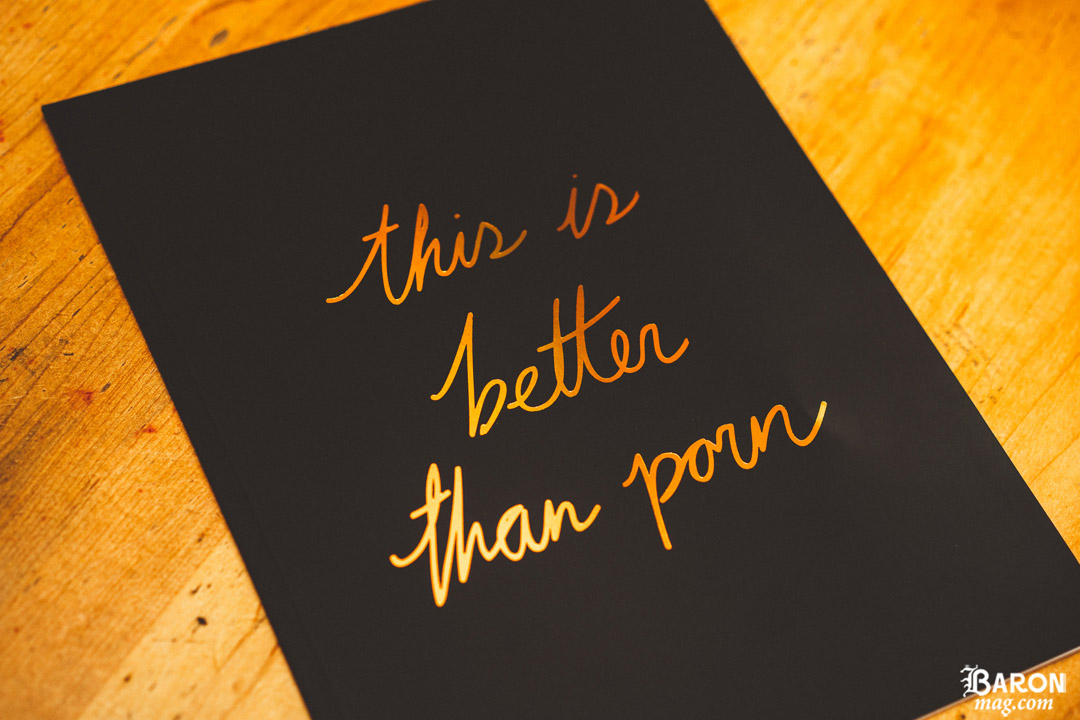 this is
better
than porn
BARON
mag.com